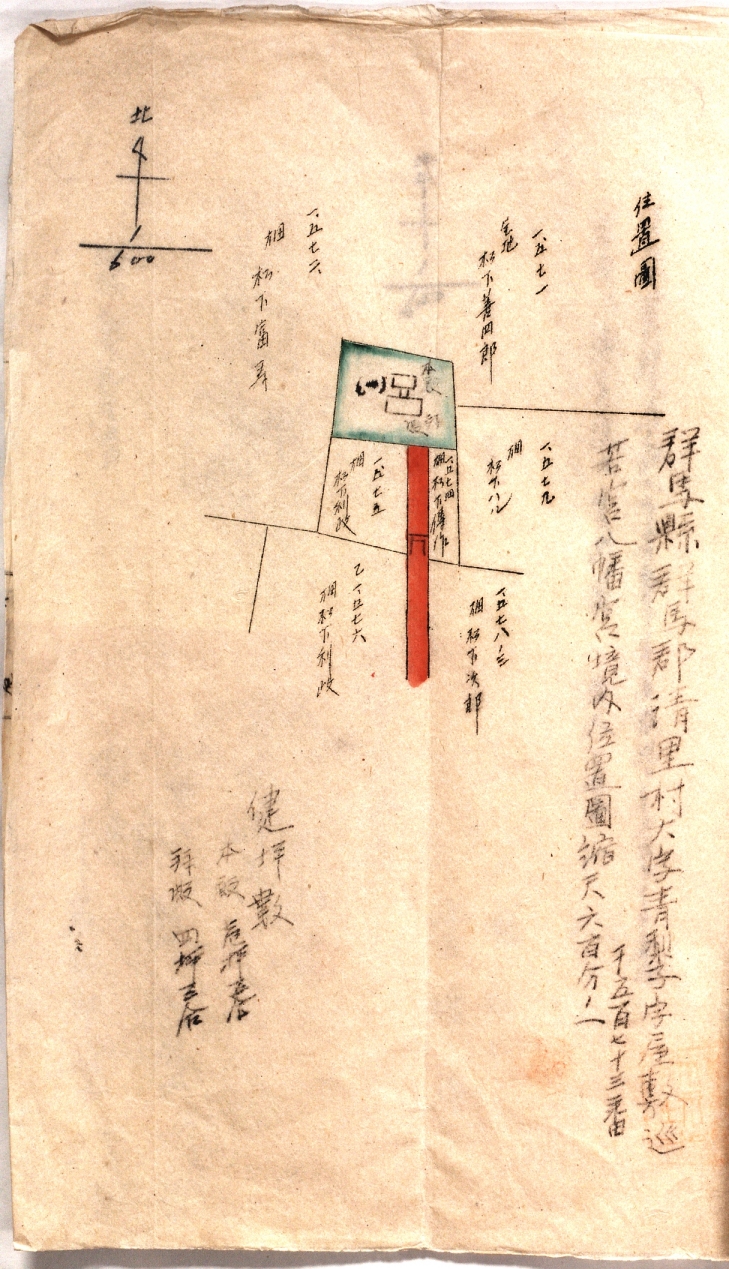 位置圖
群馬縣群馬郡清里村大字青梨子字屋敷巡
千五百七十三番
若宮八幡宮境内位置圖縮尺六百分ノ一
一、五七一
宅地
松下善四郎
一、五七二
畑
松下富
北
1
600
本殿
拝殿
一五七九
畑
松下八
一五七四
畑 松下傳作
一五七五
畑
松下利政
一五七八ノ三
畑 松下次郎
乙一五七六
畑 松下利政
健坪數
本殿 坪五合
拜殿 四坪五合